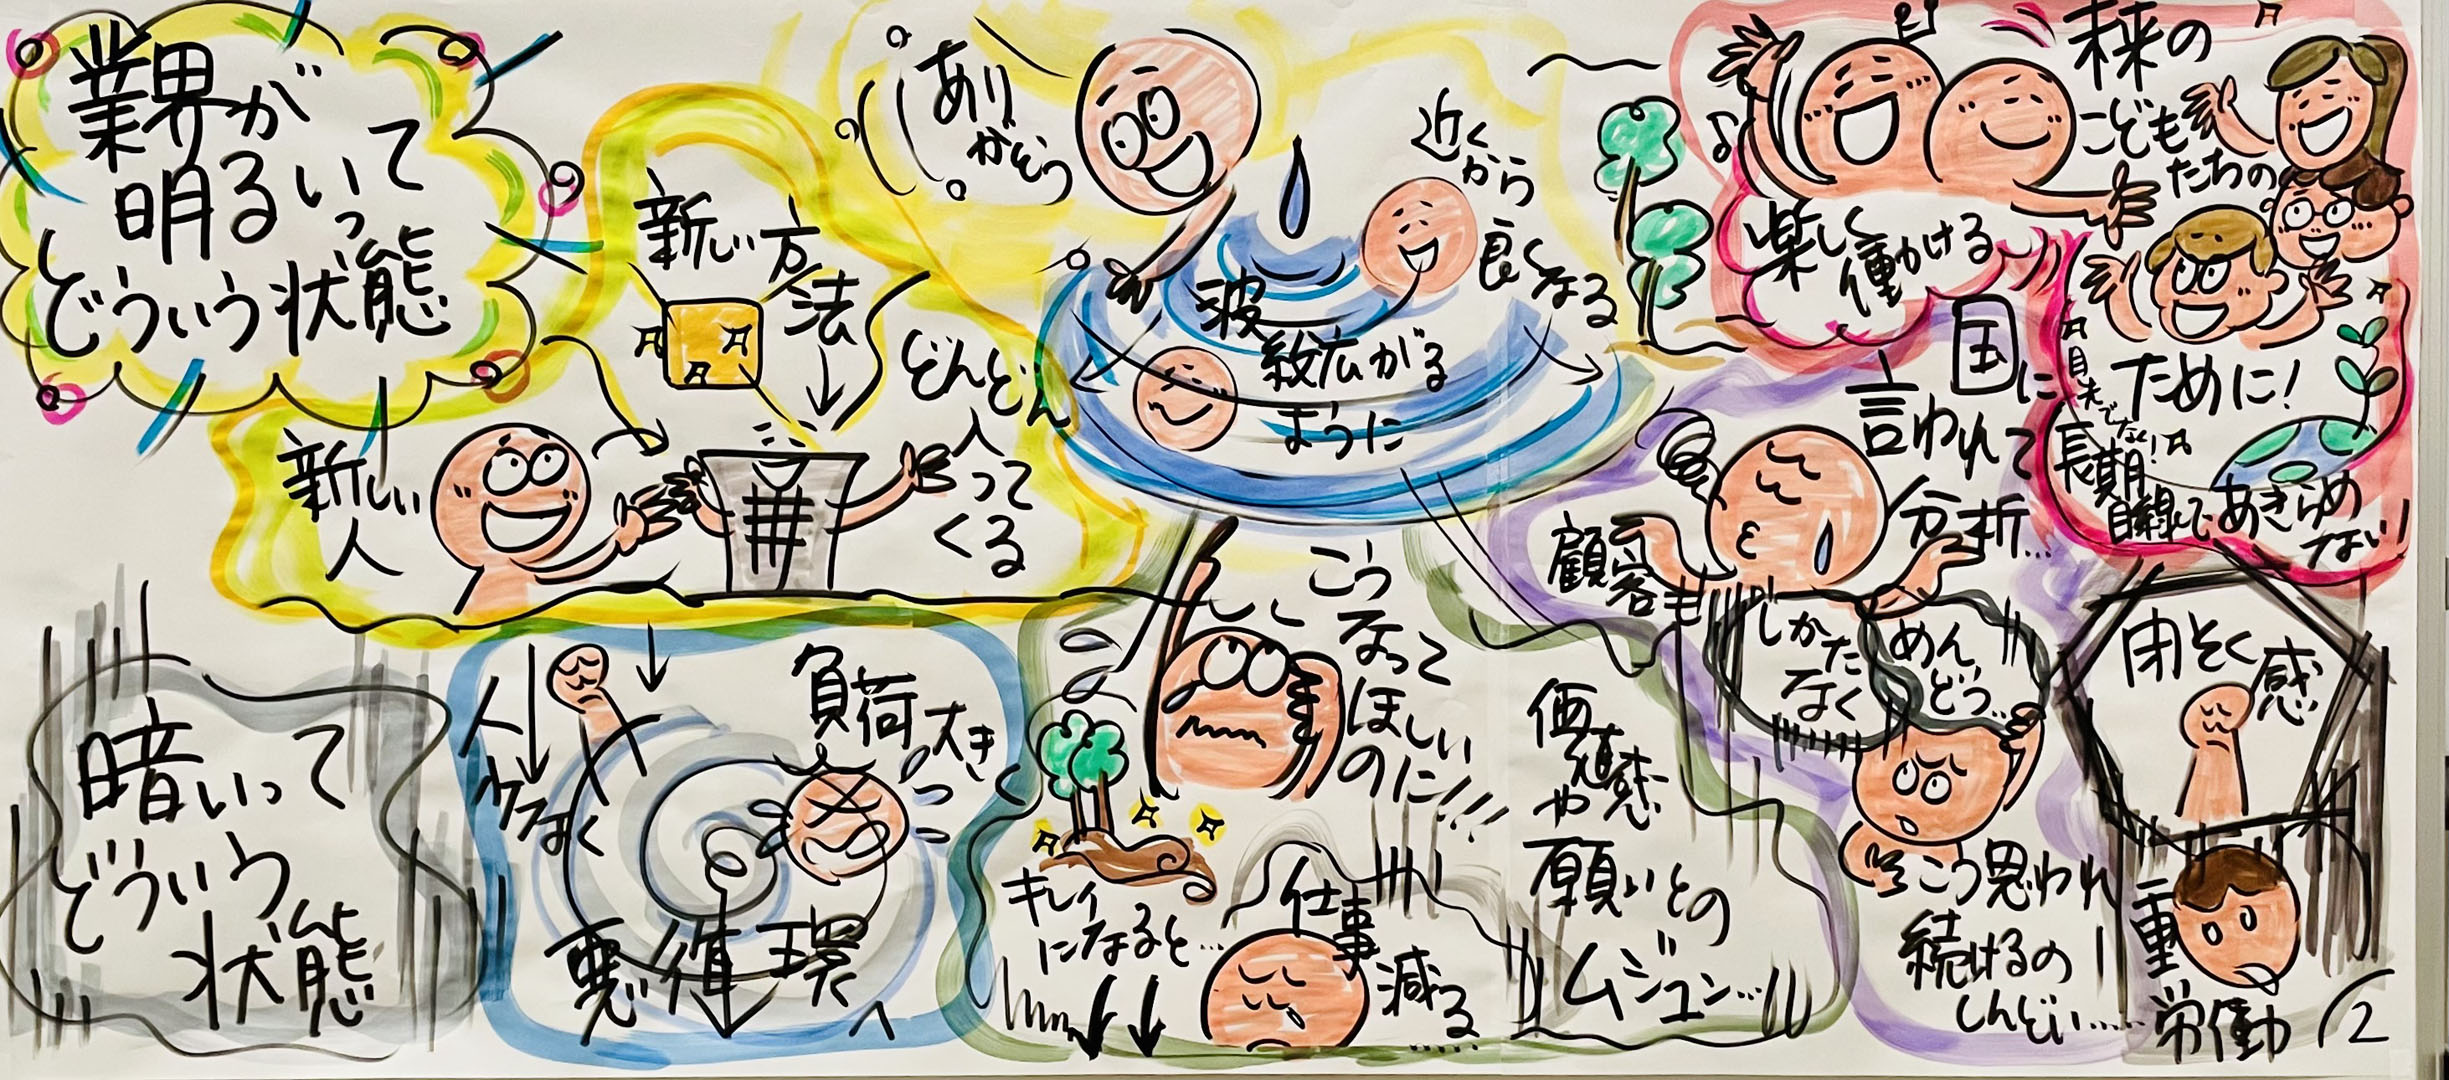 業界が
明るいって
どういう状態
新しい
人
新しい方
法
どんどん
入って
くる
あり
がとう
近く
から
良く
なる
波
紋広がる
ように
楽しく
働ける
未来の
こどもたちの
ために!
目先でなく!
長期
目線で
あきらめ
ない!
国に
言われて
分析…
顧客も
しかた
なく
めん
どう…
こう思われ
続けるの
しんどい……
閉そく
感
重
労働
暗いって
どういう
状態
人
少なく
負荷大きく
悪循環へ
こう
なって
ほしい
のに!!!
キレイ
になると…
仕事
減る
……
価値感
や
願いとの
ムジュン…
2